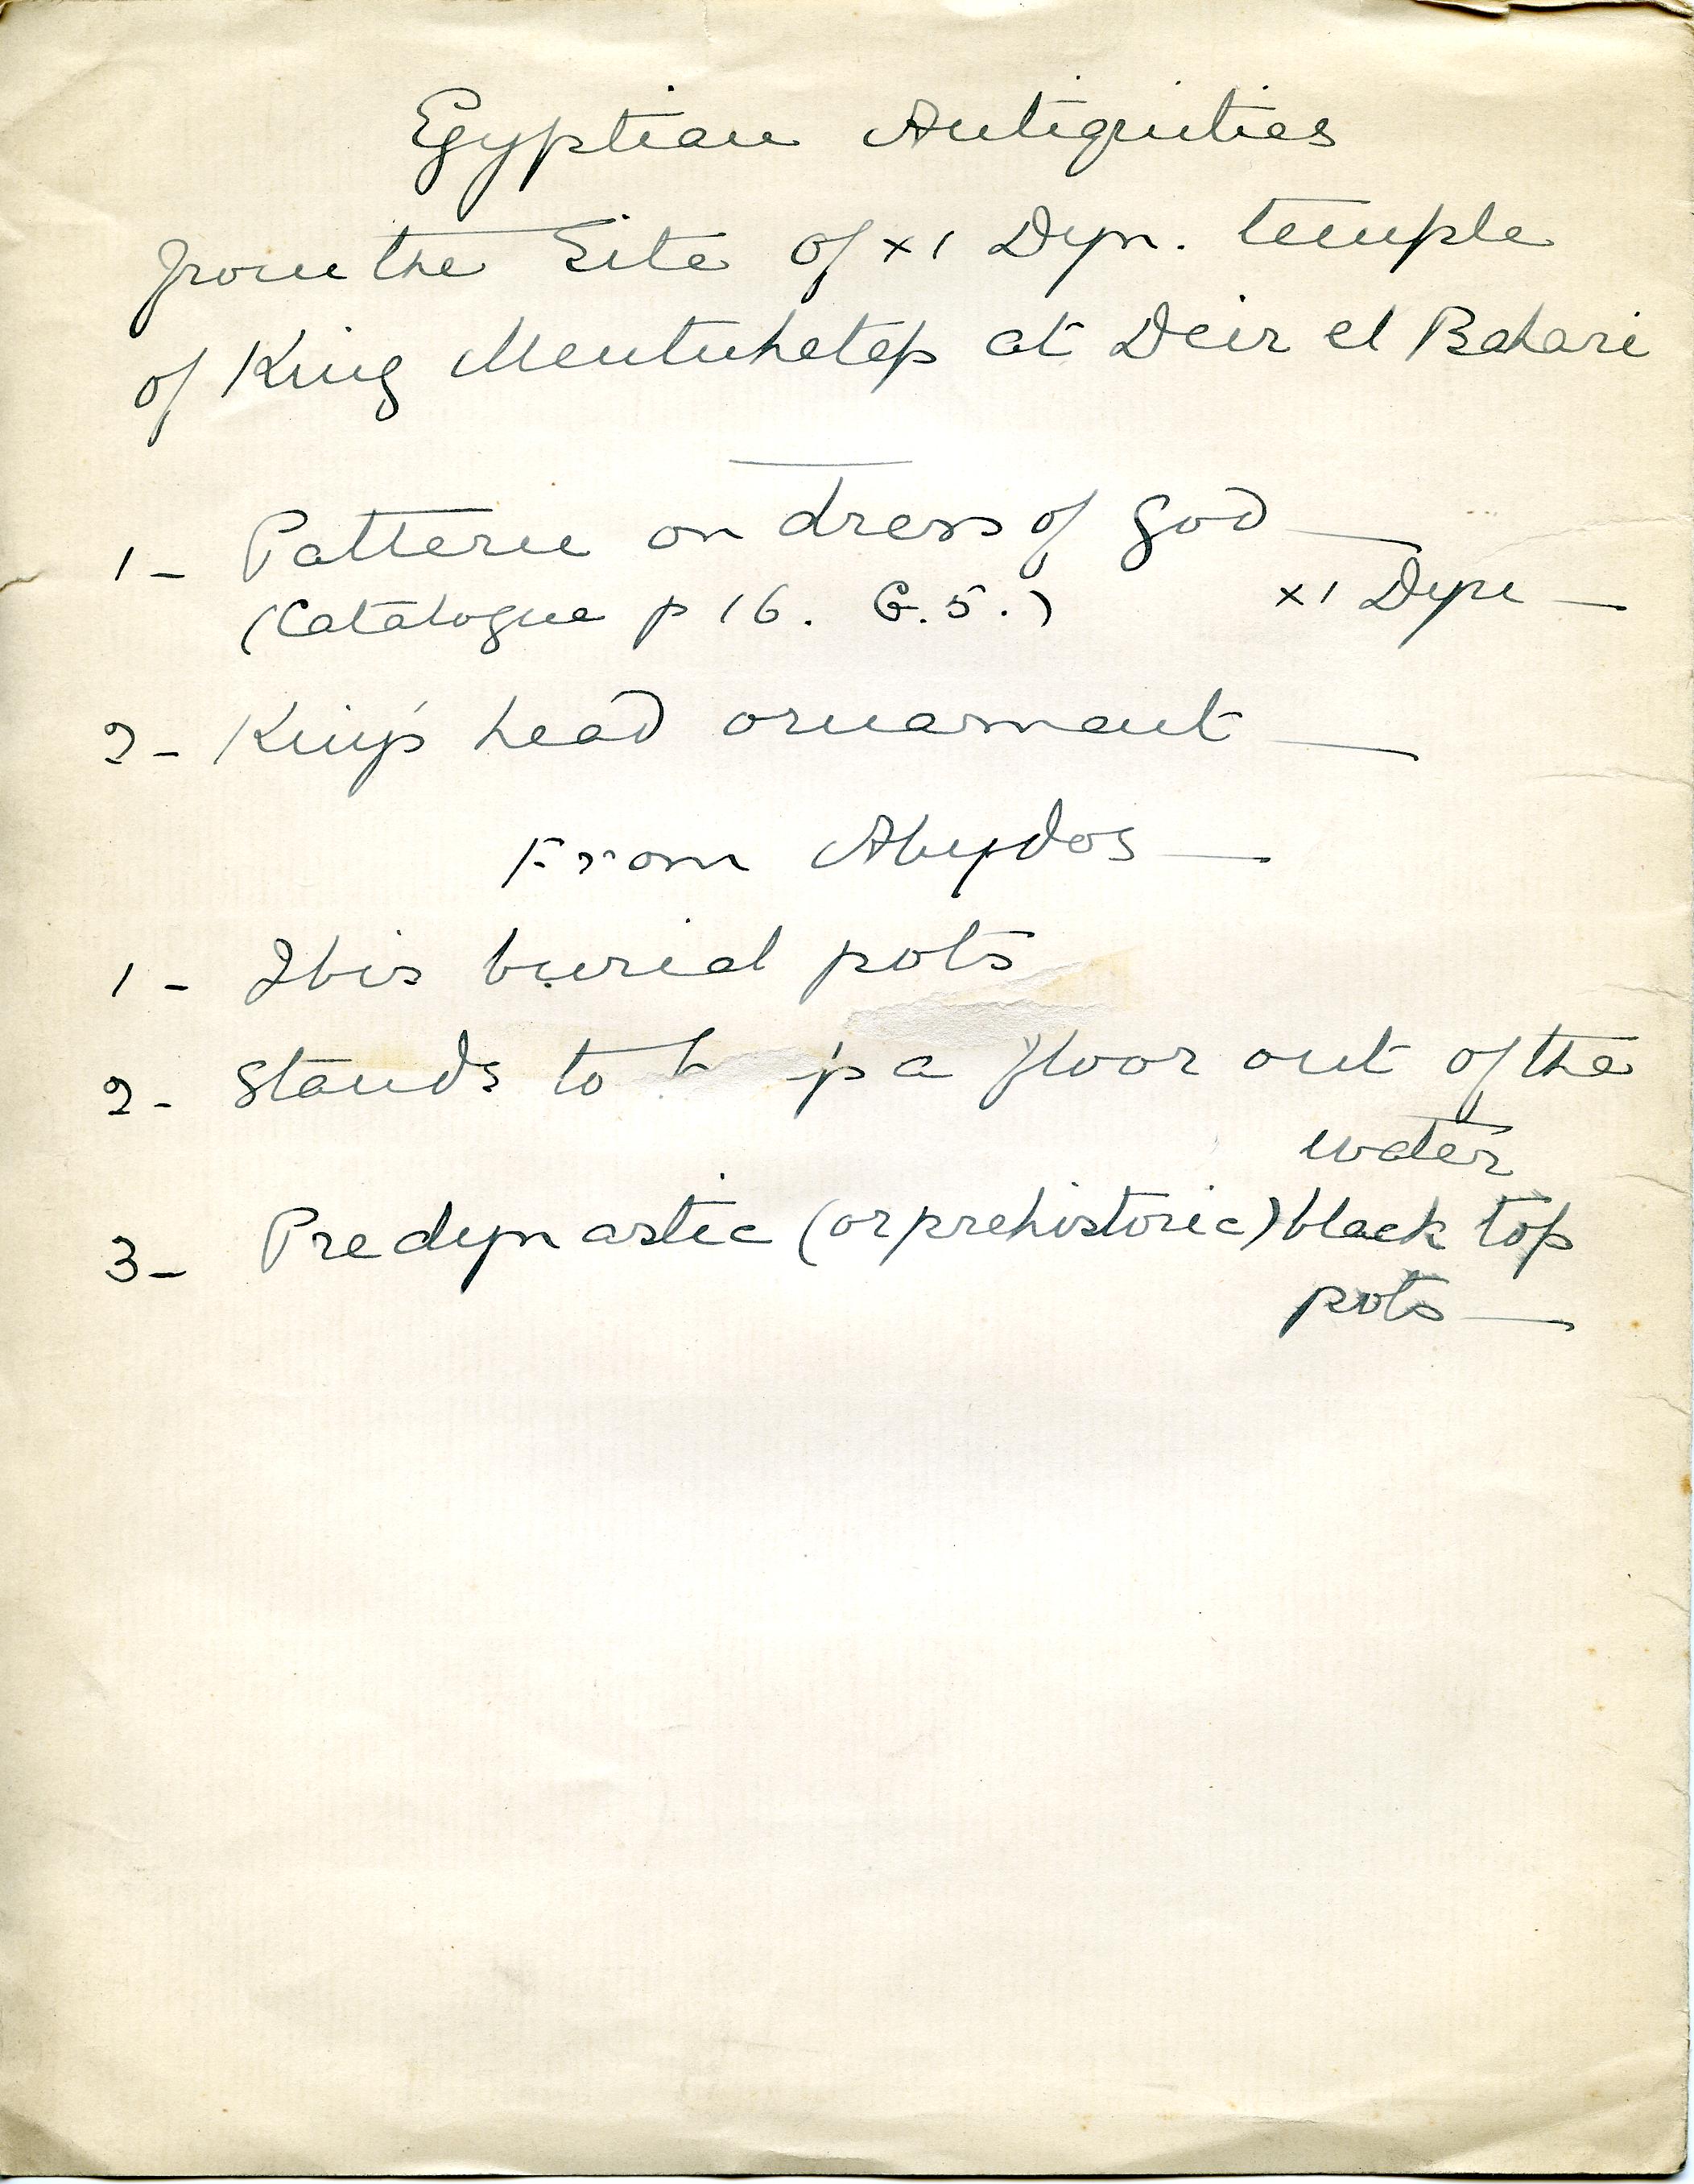 Egyptian Antiquities
from the Site of XI Dyn. temple
of King Mentuhetep at Deir el Bahari
1 - Pattern on dress of god —
(Catalogue p 16. G.5.) XI Dyn —
2 - King's head ornament —
From Abydos —
1 - Ibis burial pots
2 - Stands to p a floor out of the
water
3 - Predynastic (or prehistoric) black top
pots —